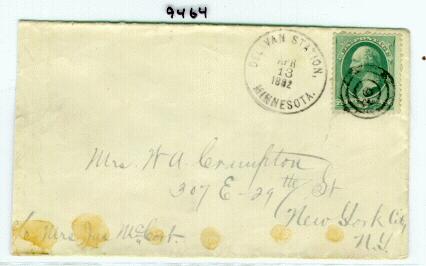 9464
DELAVAN STATION,
APR
13
1882
MINNESOTA.
Mrs. W. A. Crumpton
307 E - 29th St
New York City
N.Y.
c/o Mrs Jas McCort.